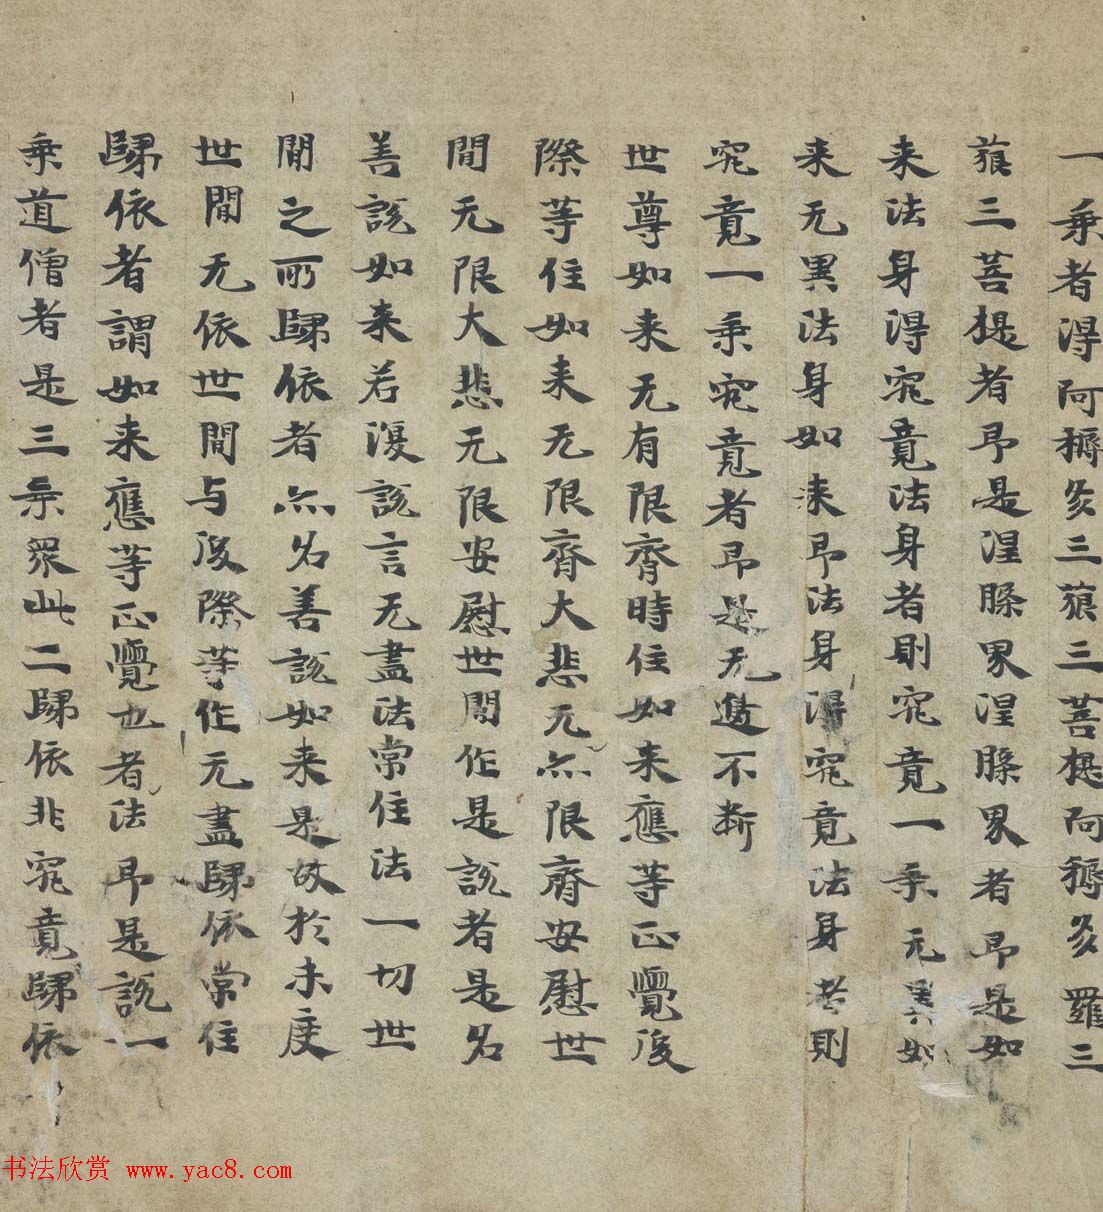 一乗者得阿耨多三藐三菩提阿耨多羅三
藐三菩提者即是涅槃界涅槃界者即是如
来法身得究竟法身者則究竟一乗无異如
来无異法身如来即法身得究竟法身者則
究竟一乗究竟者即是无邊不断
世尊如来无有限齊時住如来應等正覺後
際等住如来无限齊大悲无亦限齊安慰世
間无限大悲无限安慰世間作是説者是名
善説如来若復説言无盡法常住法一切世
間之所歸依者亦名善説如来是故於未度
世間无依世間与後際等作无盡歸依常住
歸依者謂如来應等正覺也者法即是説一
乗道僧者是三乗衆此二歸依非究竟歸依
书法欣赏 www.yac8.com